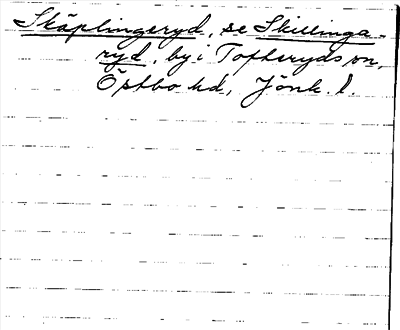 Skäplingeryd, se Skillinga-
ryd, by i Tofteryds sn,
Östbo hd, Jönk. l.